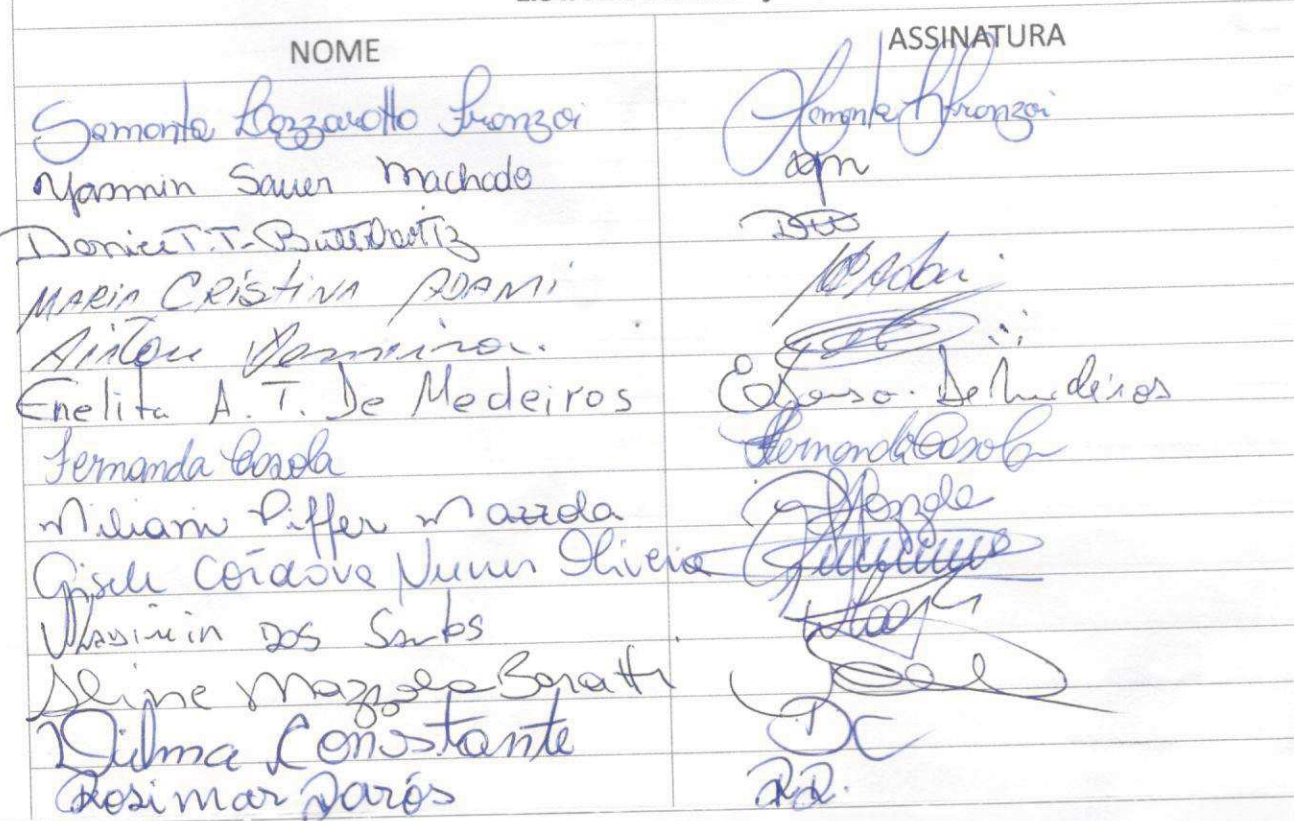 NOME ASSINATURA
Samanta Lazzarotto Franzoi Samanta L Franzoi
Yasmin Sauer Machado ysm
T.T.
MARIA CRISTINA ADAMI
Airton
Enelita A. T. De Medeiros De Medeiros
Fernanda Casola Fernanda Casola
Miliam Piffer Mazzola
Gisele Córdova Nunes Oliveira
Vladimir DOS Santos
Aline Mazzola Baratti
Dilma Constante DC
Rosimar Darós R.D.